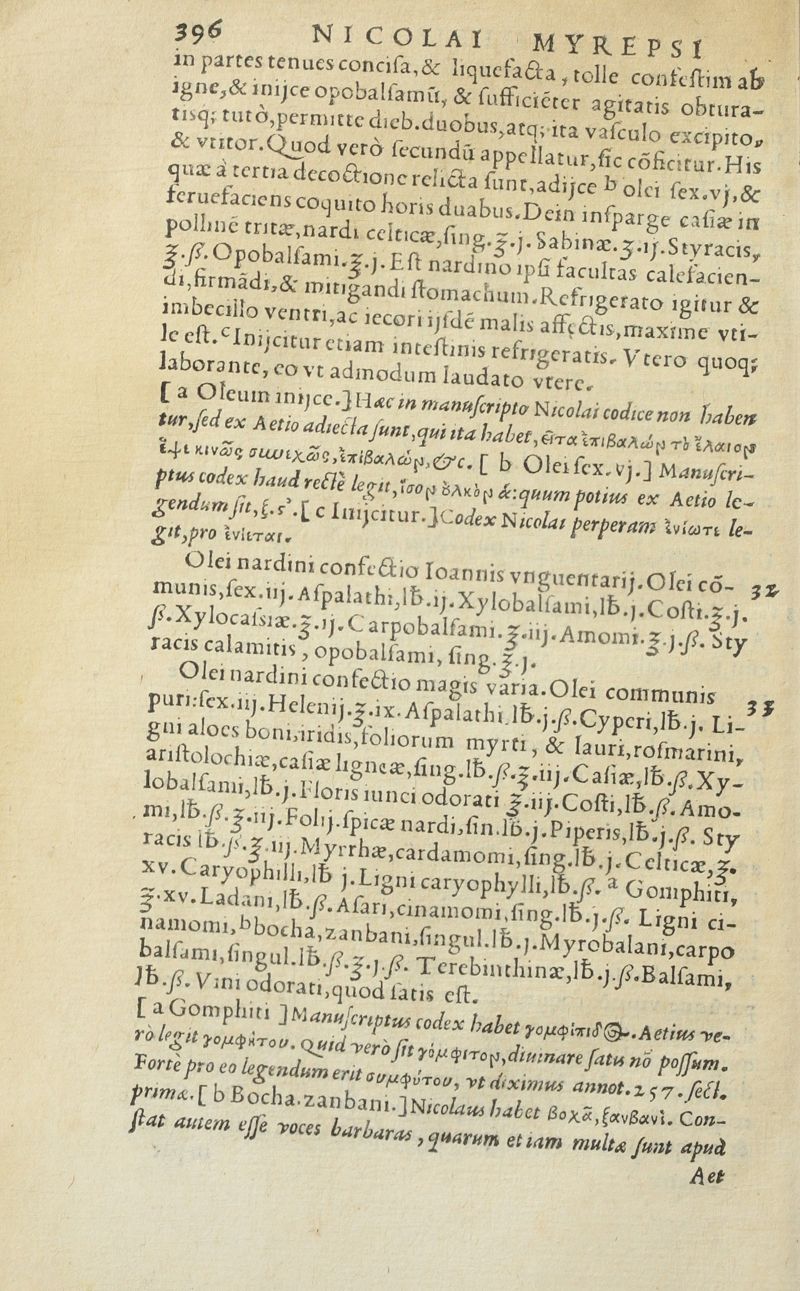 396 NICOLAI MYREPSI
in partes tenues concisa,& liquefacta, tolle confestim ab
igne,& inijce opobalsamũ, & sufficiẽter agitatis obtura-
tisq; tutò,permitte dieb.duobus,atq; ita vasculo excipito,
& vtitor.Quod verò secundũ appellatur,sic cõficitur.His
quæ à tertia decoctione relicta sunt,adijce b olei sex.vj.&
feruefaciens coquito horis duabus.Dein insparge casiæ in
pollinẽ tritæ,nardi celticæ,sing.℥.j.Sabinæ.℥.ij.Styracis,
℥.ß.Opobalsami.℥.j.Est nardino ipsi facultas calefacien-
di,firmãdi,& mitigandi stomachum.Refrigerato igitur &
imbecillo ventri,ac iecori ijsdẽ malis affectis,maxime vti-
le est.cInijcitur etiam intestinis refrigeratis.Vtero quoq;
laborante,eo vt admodum laudato vtere.
[ a Oleum inijce.] Hæc in manuscripto Nicolai codice non haben
tur,sed ex Aetio adiecta sunt,qui ita habet,εἶτα ἐπιβαλὼν τὸ ἔλαιον
ἕψι κινῶς συνεχῶς,ἐπιβαλὼν,&c. [ b Olei sex.vj.] Manuscri-
ptus codex haud rectè legit,ἴσον ὅλκον &:quum potius ex Aetio le-
gendum sit,ξ.ϛ'.[ c Inijcitur.]Codex Nicolai perperam ἐνίωτε le-
git,pro ἐνίεται.
Olei nardini confectio Ioannis vnguentarij.Olei cõ- 32
munis,sex.iij.Aspalathi,lb.ij.Xylobalsami,lb.j.Costi.℥.j.
ß.Xylocasiæ.℥.ij.Carpobalsami.℥.iij.Amomi.℥.j.ß.Sty
racis calamitis, opobalsami, sing.℥.j.
Olei nardini confectio magis varia.Olei communis 33
puri:sex.iij.Helenij.℥.ix.Aspalathi lb.j.ß.Cyperi,lb.j. Li-
gni aloes boni,iridis,foliorum myrti, & lauri,rosmarini,
aristolochiæ,casiæ ligneæ,sing.lb.ß.℥.iij.Casiæ,lb.ß.Xy-
lobalsami,lb.j.Floris iunci odorati ℥.iij.Costi,lb.ß.Amo-
mi,lb.ß.℥.iij.Folij.spicæ nardi,sin.lb.j.Piperis,lb.j.ß. Sty
racis lb.ß.℥.iij.Myrrhæ,cardamomi,sing.lb.j.Celticæ,℥.
xv.Caryophilli,lb j.Ligni caryophylli,lb.ß. a Gomphiti,
℥.xv.Ladani,lb.ß.Asari,cinamomi,sing.lb.j.ß. Ligni ci-
namomi,bbocha,zanbani,singul.lb.j.Myrobalani,carpo
balsami,singul.lb.ß.℥.j.ß. Terebinthinæ,lb.j.ß.Balsami,
lb.ß.Vini odorati,quod satis est.
[ a Gomphiti ]Manuscriptus codex habet γομφίτιδος.Aetius ve-
rò legit γομφίτου. Quid verò sit γόμφιτον,diuinare satis nõ possum.
Fortè pro eo legendum erit συμφύτου, vt diximus annot.257.sect.
primæ.[ b Bocha.zanbani.]Nicolaus habet βοχᾶ,ξανβανί. Con-
stat autem esse voces barbaras, quarum etiam multæ sunt apud
Aet